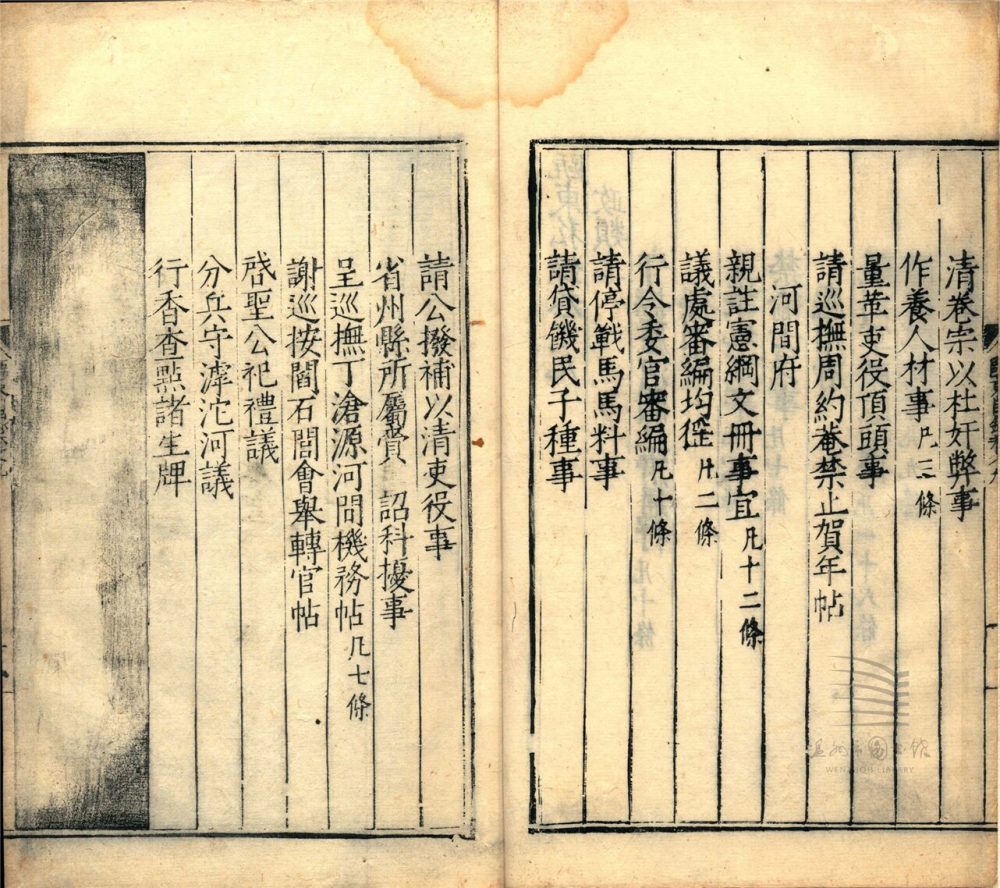 清卷宗以杜奸弊事
作養人材事凡三條
量革吏役頂頭事
請巡撫周約菴禁止賀年帖
河間府
親註憲綱文冊事宜凡十二條
議處審編均徭凡二條
行令委官審編凡十條
請停戰馬馬料事
請貸饑民子種事
請公撥補以清吏役事
省州縣所屬賞 詔科擾事
呈巡撫丁滄源河間機務帖凡七條
謝巡按閻石閭會舉轉官帖
啓聖公祀禮議
分兵守滹沱河議
行香查點諸生牌
WENZHOU LIBRARY